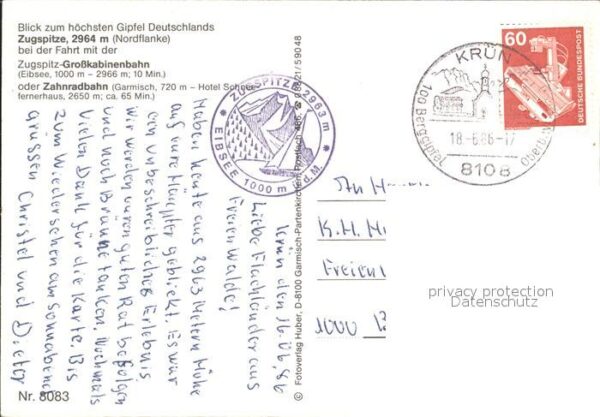 Blick zum höchsten Gipfel Deutschlands
Zugspitze, 2964 m (Nordflanke)
bei der Fahrt mit der
Zugspitz-Großkabinenbahn
(Eibsee, 1000 m – 2966 m; 10 Min.)
oder Zahnradbahn (Garmisch, 720 m – Hotel Schnee-
fernerhaus, 2650 m; ca. 65 Min.)
Krün den 16.06.86
Liebe Flachländer aus
Freienwalde!
Haben heute aus 2963 Metern Höhe
auf eure Häupter geblickt. Es war
ein unbeschreibliches Erlebnis
wir werden euren guten Rat befolgen
und noch Bräune tanken. Nochmals
Vielen Dank für die Karte. Bis
zum Wiedersehen am Sonnabend
grüssen Christel und Dieter
Nr. 8083
ZUGSPITZE 2963 m
EIBSEE 1000 m ü.d.M
© Fotoverlag Huber, D-8100 Garmisch-Partenkirchen, Postfach 466, ☎ 08821/59048
KRÜN
18.-6.86-17
8108
60
DEUTSCHE BUNDESPOST
An
K.H.
Freien
1000
privacy protection
Datenschutz